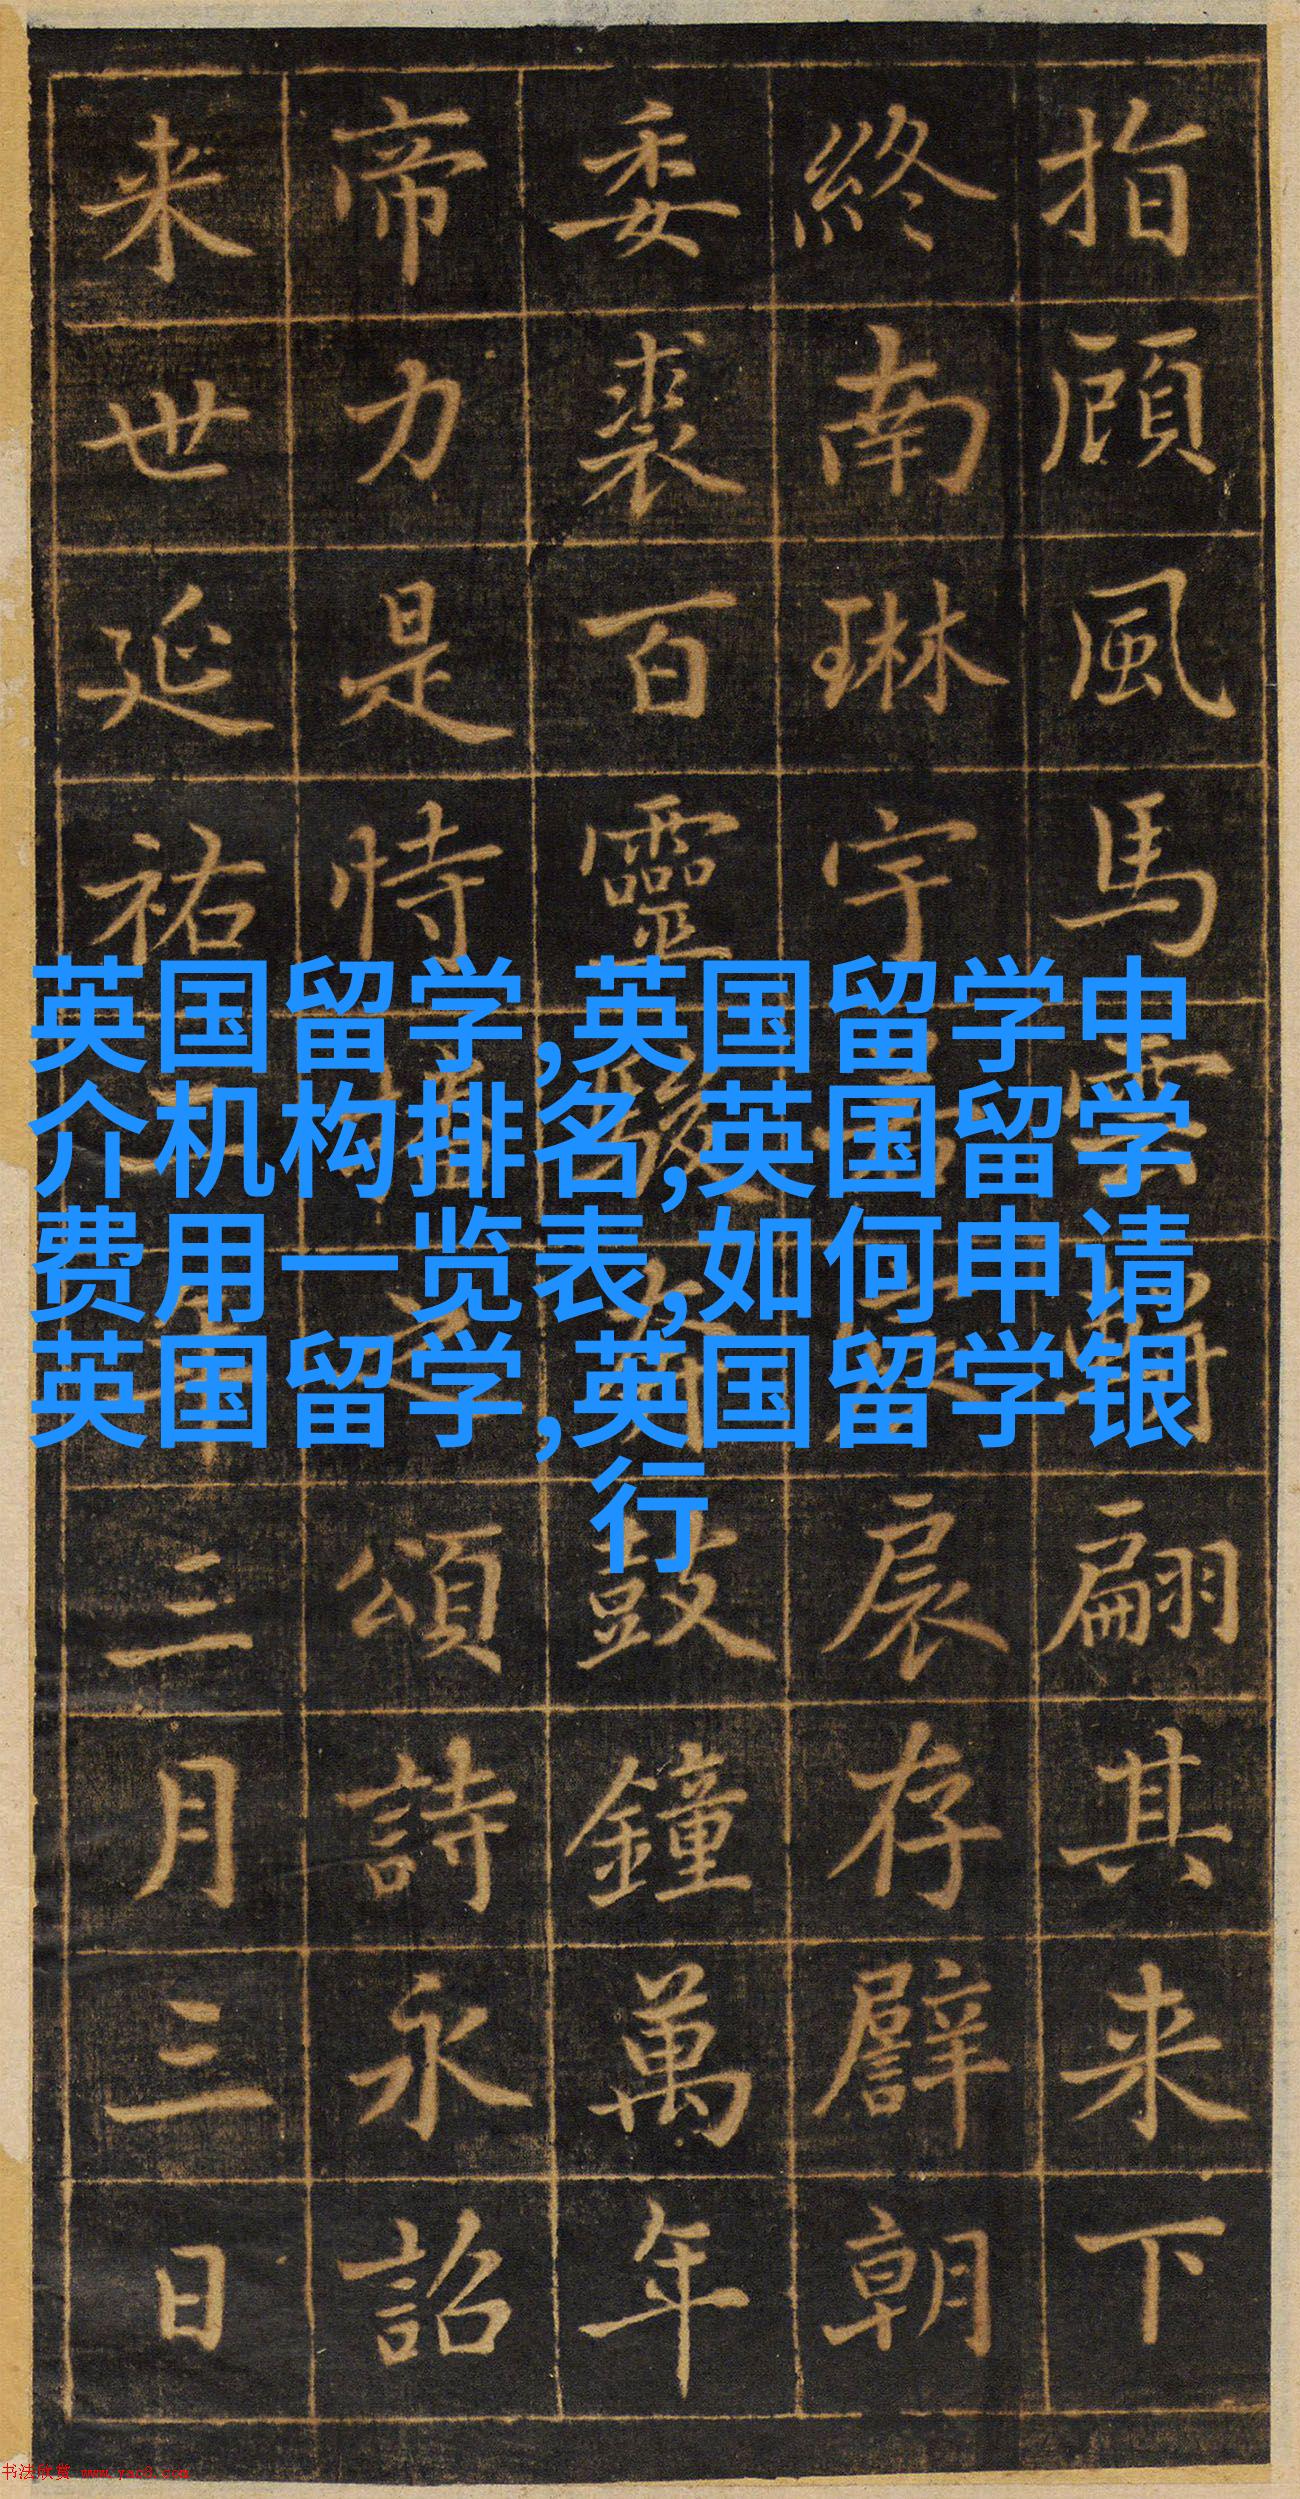 指顧風馬雲翩其来下
終南琳宇扆存朝
委裘百靈鼓鐘萬年
帝力是恃之頌詩永詔
来世延祐年三月三日
英国留学,英国留学中
介机构排名,英国留学
费用一览表,如何申请
英国留学,英国留学银
行
书法欣赏 www.yac8.com